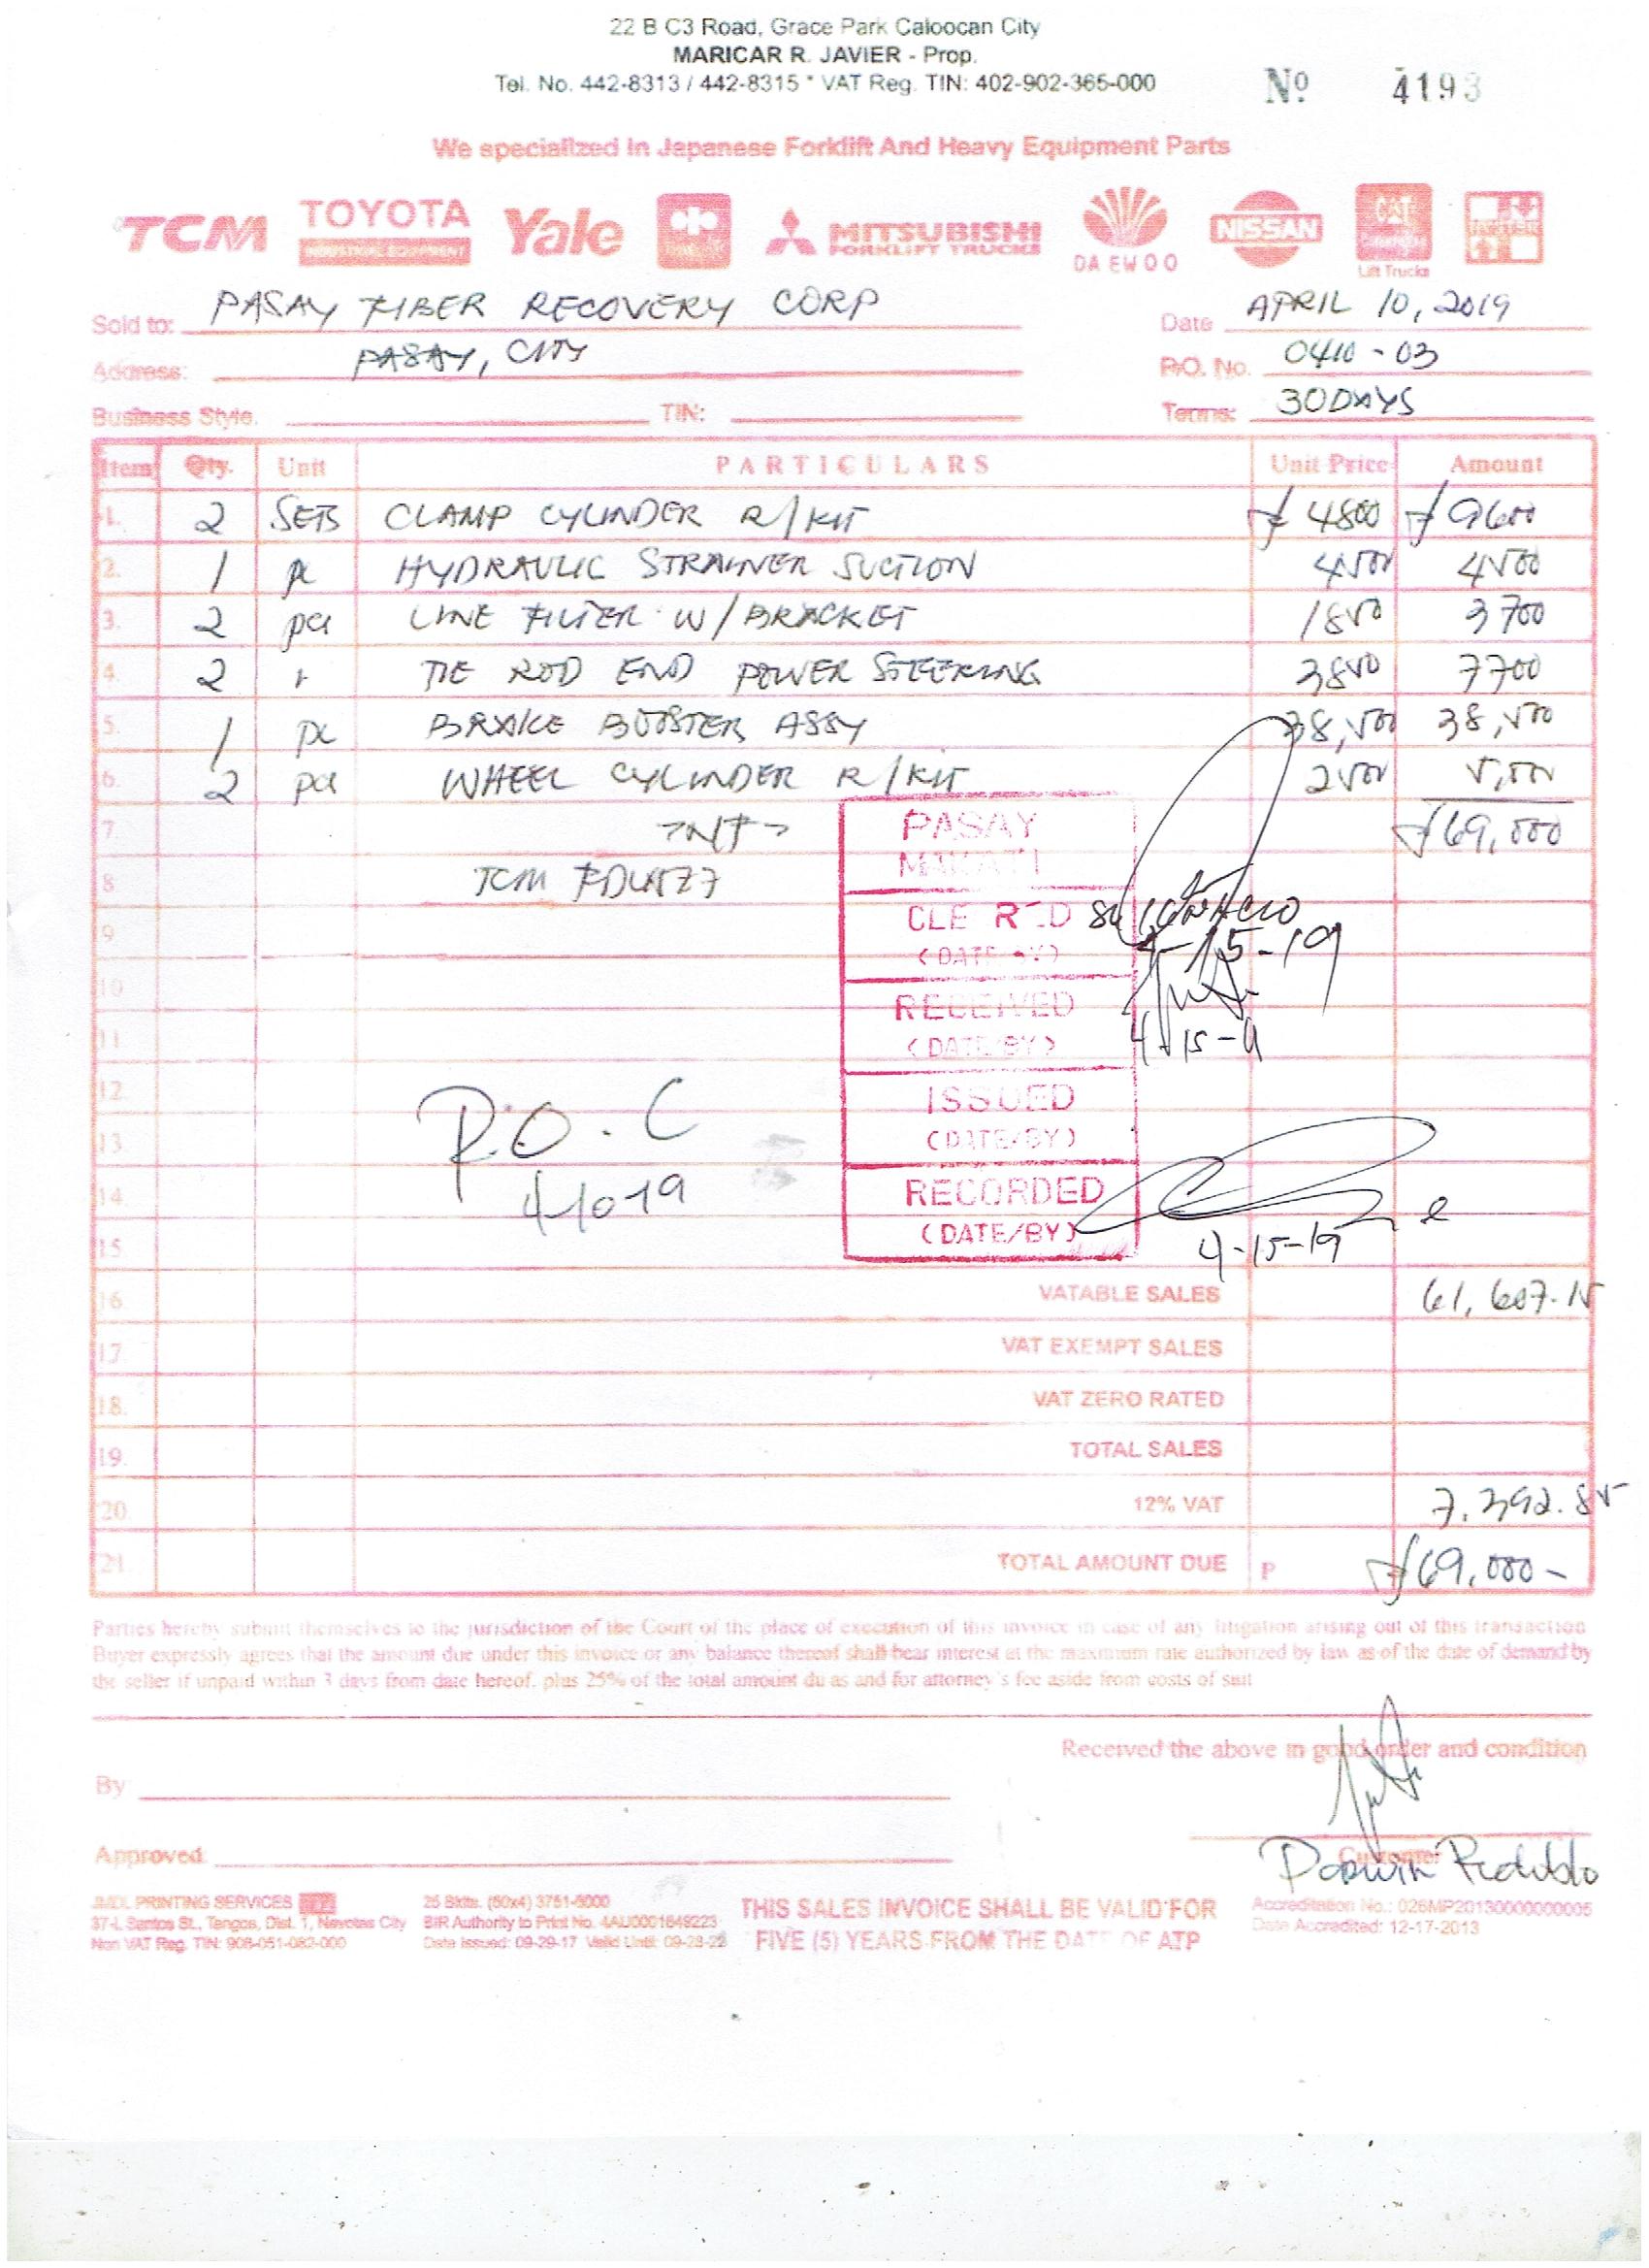 22 B C3 Road, Grace Park Caloocan City
MARICAR R. JAVIER - Prop.
Tel. No. 442-8313 / 442-8315 * VAT Reg. TIN: 402-902-365-000
Nº 4193
We specialized in Japanese Forklift And Heavy Equipment Parts
TCM TOYOTA INDUSTRIAL EQUIPMENT Yale MITSUBISHI FORKLIFT TRUCKS DAEWOO NISSAN CAT Lift Trucks
Sold to: PASAY FIBER RECOVERY CORP Date APRIL 10, 2019
Address: PASAY, CITY P.O. No. 0410-03
Business Style. TIN: Terms: 30 DAYS
Item Qty. Unit PARTICULARS Unit Price Amount
1. 2 SETS CLAMP CYLINDER R/KIT ₱ 4800 ₱ 9600
2. 1 pc HYDRAULIC STRAINER SUCTION 4500 4500
3. 2 pcs LINE FILTER W/BRACKET 1850 3700
4. 2 " TIE ROD END POWER STEERING 3850 7700
5. 1 pc BRAKE BOOSTER ASSY 38,500 38,500
6. 2 pcs WHEEL CYLINDER R/KIT 2500 5,000
7. ₱69,000
8 TCM
9
10
11
12
13
14
15
PASAY
MAKATI
CLEARED
(DATE BY)
4-15-19
RECEIVED
(DATE/BY)
ISSUED
(DATE/BY)
RECORDED
(DATE/BY)
4-15-19
P.O. C
4-10-19
16 VATABLE SALES 61,607.15
17 VAT EXEMPT SALES
18. VAT ZERO RATED
19. TOTAL SALES
20 12% VAT 7,392.85
21 TOTAL AMOUNT DUE P ₱69,000-
Parties hereby submit themselves to the jurisdiction of the Court of the place of execution of this invoice in case of any litigation arising out of this transaction
Buyer expressly agrees that the amount due under this invoice or any balance thereof shall bear interest at the maximum rate authorized by law as of the date of demand by
the seller if unpaid within 3 days from date hereof, plus 25% of the total amount du as and for attorney's fee aside from costs of suit
Received the above in good order and condition
By
Approved:
Customer
Darwin
JMDL PRINTING SERVICES
37-L Santos St., Tangos, Dist. 1, Navotas City
Non VAT Reg. TIN: 908-051-082-000
25 Bklts. (50x4) 3751-5000
BIR Authority to Print No. 4AU0001649223
Date Issued: 09-29-17 Valid Until: 09-28-22
THIS SALES INVOICE SHALL BE VALID FOR
FIVE (5) YEARS FROM THE DATE OF ATP
Accreditation No.: 026MP20130000000005
Date Accredited: 12-17-2013